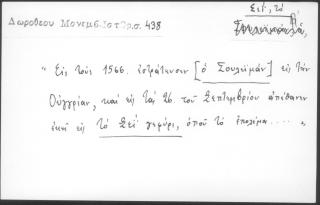 Σεί, τὸ
Δωροθεου Μονεμβ. Ιστορ. σ. 438
“ Εἰς τοὺς 1566. ἐστράτευσεν [ὁ Σουλεϊμὰν] εἰς τὴν
Οὑγγρίαν, καὶ εἰς τὰς 26. τοῦ Σεπτεμβρίου ἀπέθανεν
ἐκεῖ εἰς τὸ Σεΐ γεφύρι, ὁποῦ τὸ ἐπολέμα.... „